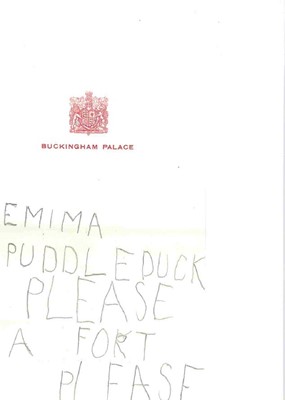 BUCKINGHAM PALACE
EMIMA
PUDDLEDUCK
PLEASE
A FORT
PLEASE